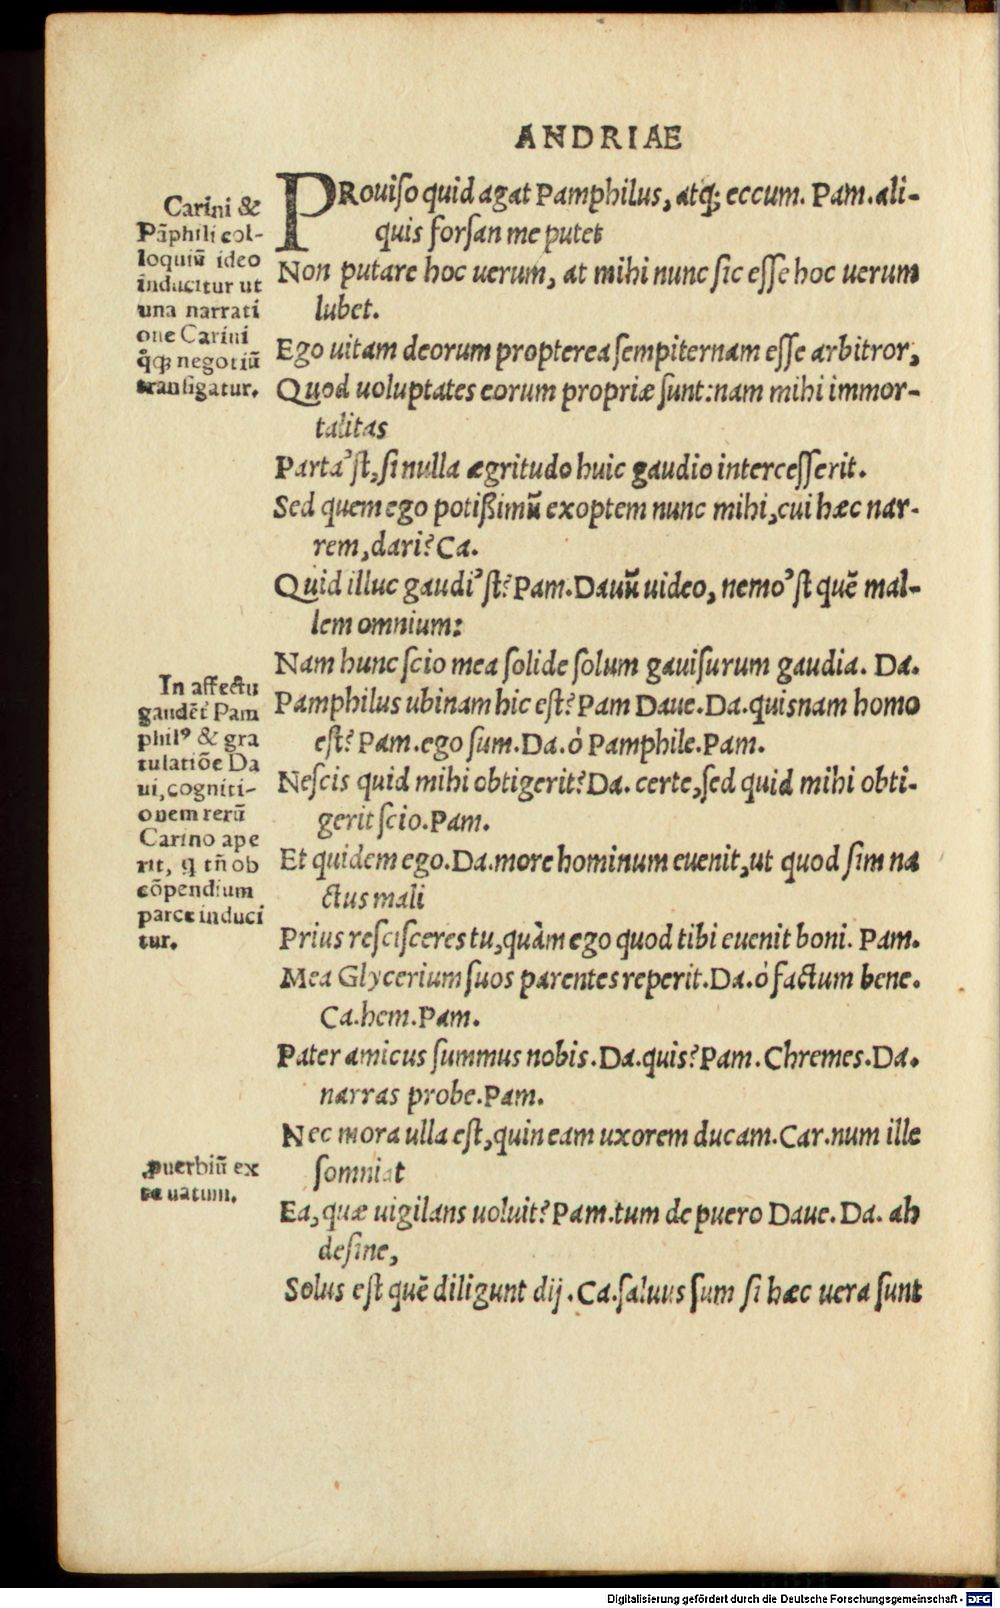 ANDRIAE
PRouiſo quid agat Pamphilus, atq; eccum. Pam. ali-
quis forſan me putet
Non putare hoc uerum, at mihi nunc ſic eſſe hoc uerum
lubet.
Ego uitam deorum propterea ſempiternam eſſe arbitror,
Quod uoluptates eorum propriæ ſunt: nam mihi immor-
talitas
Parta'ſt, ſi nulla ægritudo huic gaudio interceſſerit.
Sed quem ego potiſſimū exoptem nunc mihi, cui hæc nar-
rem, dari? Ca.
Quid illuc gaudi'ſt? Pam. Dauū uideo, nemo'ſt quē mal-
lem omnium:
Nam hunc ſcio mea ſolide ſolum gauiſurum gaudia. Da.
Pamphilus ubinam hic eſt? Pam Daue. Da. quisnam homo
eſt? Pam. ego ſum. Da. ò Pamphile. Pam.
Neſcis quid mihi obtigerit? Da. certe, ſed quid mihi obti-
gerit ſcio. Pam.
Et quidem ego. Da. more hominum euenit, ut quod ſim na
ctus mali
Prius reſciſceres tu, quàm ego quod tibi euenit boni. Pam.
Mea Glycerium ſuos parentes reperit. Da. ò factum bene.
Ca. hem. Pam.
Pater amicus ſummus nobis. Da. quis? Pam. Chremes. Da.
narras probe. Pam.
Nec mora ulla eſt, quin eam uxorem ducam. Car. num ille
ſomniat
Ea, quæ uigilans uoluit? Pam. tum de puero Daue. Da. ah
deſine,
Solus eſt quē diligunt dij. Ca. ſaluus ſum ſi hæc uera ſunt
Carini &
Pāphili col-
loquiū ideo
inducitur ut
una narrati
one Carini
q̊q; negotiū
tranſigatur.
In affectu
gaudēt Pam
philꝰ & gra
tulatiōe Da
ui, cogniti-
onem rerū
Carino ape
rit, ꝗ tñ ob
cōpendium
parce induci
tur.
ꝓuerbiū ex
ta uatum.
Digitalisierung gefördert durch die Deutsche Forschungsgemeinschaft - DFG